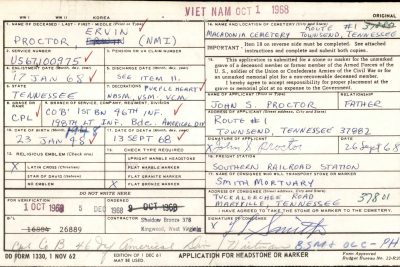 VIET NAM OCT 1 1968
WW I WW II KOREA
ORIGINAL
1. NAME OF DECEASED - LAST - FIRST - MIDDLE (Print or Type)
ERVIN
PROCTOR (NMI)
2. SERVICE NUMBER
US67100975
PENSION OR VA CLAIM NUMBER
ENLISTMENT DATE
17 JAN 68
5. DISCHARGE DATE
SEE ITEM 11.
7. STATE
TENNESSEE
DECORATIONS
PURPLE HEART
NDSM, VSM, VCM
GRADE OR RANK
CPL
9. BRANCH OF SERVICE, COMPANY, REGIMENT, DIVISION
CO 'B' 1ST BN 46TH INF.
198TH LT INF. BDE. AMERICAL DIV
10. DATE OF BIRTH
1948
23 JAN 48
11. DATE OF DEATH
13 SEP 68
15. RELIGIOUS EMBLEM (Check one)
X LATIN CROSS (Christian)
STAR OF DAVID (Hebrew)
NO EMBLEM
16. CHECK TYPE REQUIRED
UPRIGHT MARBLE HEADSTONE
FLAT MARBLE MARKER
X FLAT GRANITE MARKER
FLAT BRONZE MARKER
DO NOT WRITE HERE
1 OCT 1968
5 DEC
OCT 1968
16894 26889
Shadow Bronze 378
Kingwood, West Virginia
14. NAME AND LOCATION OF CEMETERY (City and State)
ROUTE #1
MACADONIA CEMETERY TOWNSEND, TENNESSEE
IMPORTANT - Item 18 on reverse side must be completed. See attached instructions and complete and submit both copies.
This application is submitted for a stone or marker for the unmarked grave of a deceased member or former member of the Armed Forces of the U.S., soldier of the Union or Confederate Armies of the Civil War or for an unmarked memorial plot for a non-recoverable deceased member.
I hereby agree to accept responsibility for properly placing the stone or marker at the grave or memorial plot at no expense to the Government.
JOHN S. PROCTOR
FATHER
ROUTE #1
TOWNSEND, TENNESSEE 37882
SIGNATURE OF APPLICANT
John S Proctor
26 Sept 68
SOUTHERN RAILROAD STATION
SMITH MORTUARY
TUCKALEECHEE ROAD 37801
MARYVILLE, TENNESSEE
I HAVE AGREED TO TAKE THE STONE OR MARKER TO THE CEMETERY.
SIGNATURE OF CONSIGNEE
Smith
Co B 46 Americal Div Vietnam BSM + OLC - PH
DD FORM 1330, 1 NOV 62
EDITION OF 1 DEC 61 MAY BE USED
APPLICATION FOR HEADSTONE OR MARKER
Form Approved